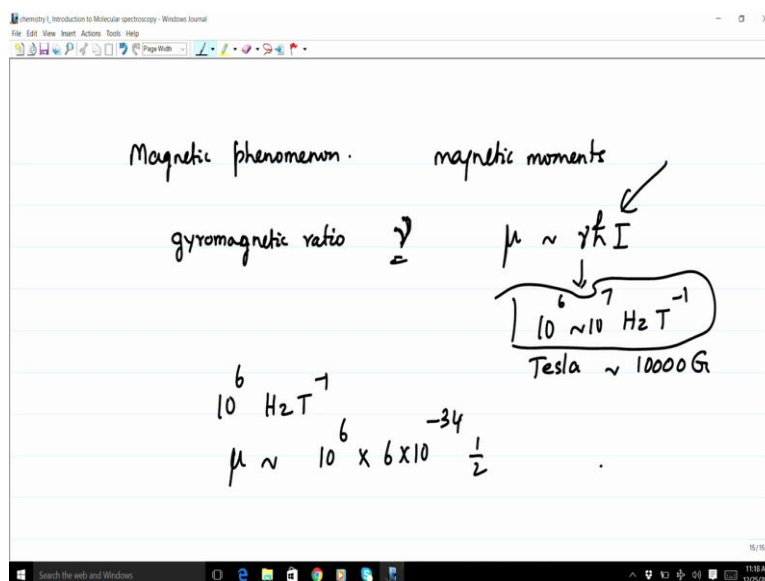 chemistry I_Introduction to Molecular spectroscopy - Windows Journal
File Edit View Insert Actions Tools Help
Page Width
Magnetic phenomenon. magnetic moments
gyromagnetic ratio γ μ ~ γħI
10⁶ ~10⁷ Hz T⁻¹
Tesla ~ 10000 G
10⁶ Hz T⁻¹
μ ~ 10⁶ x 6x10⁻³⁴ 1/2
15/15
Search the web and Windows
11:18 A